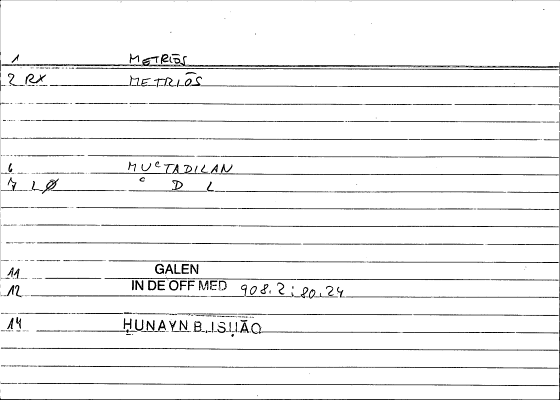 1 METRIŌS
2 RX METRIŌS
6 MUᶜTADILAN
7 LØ ᶜ D L
11 GALEN
12 IN DE OFF MED 908.2:80.24
14 ḤUNAYN B. ISḤĀQ